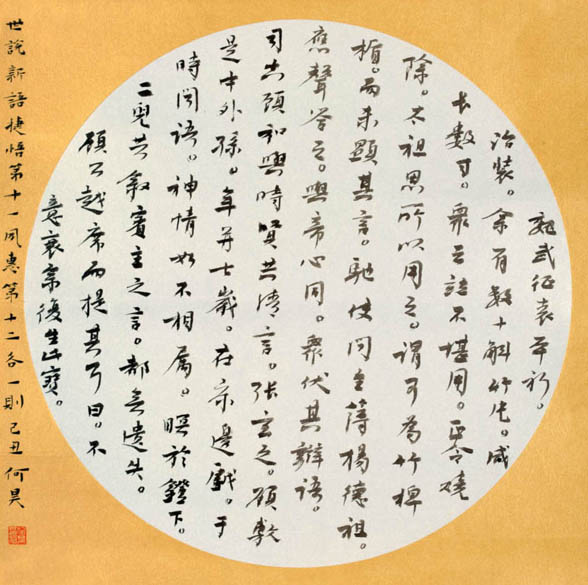 魏武征袁本初。
治裝。余有數十斛竹片。咸
長數寸。衆云並不堪用。正令燒
除。太祖思所以用之。謂可為竹椑
楯。而未顯其言。馳使問主簿楊德祖。
應聲答之。與帝心同。衆伏其辯語。
司空顧和與時賢共清言。張玄之。顧敷
是中外孫。年并七歲。在床邊戲。于
時聞語。神情如不相屬。瞑於鐙下。
二兒共敘賓主之言。都無遺失。
顧公越席而提其耳曰。不
意衰宗復生此寶。
世說新語捷悟第十一夙惠第十二各一則己丑何昊